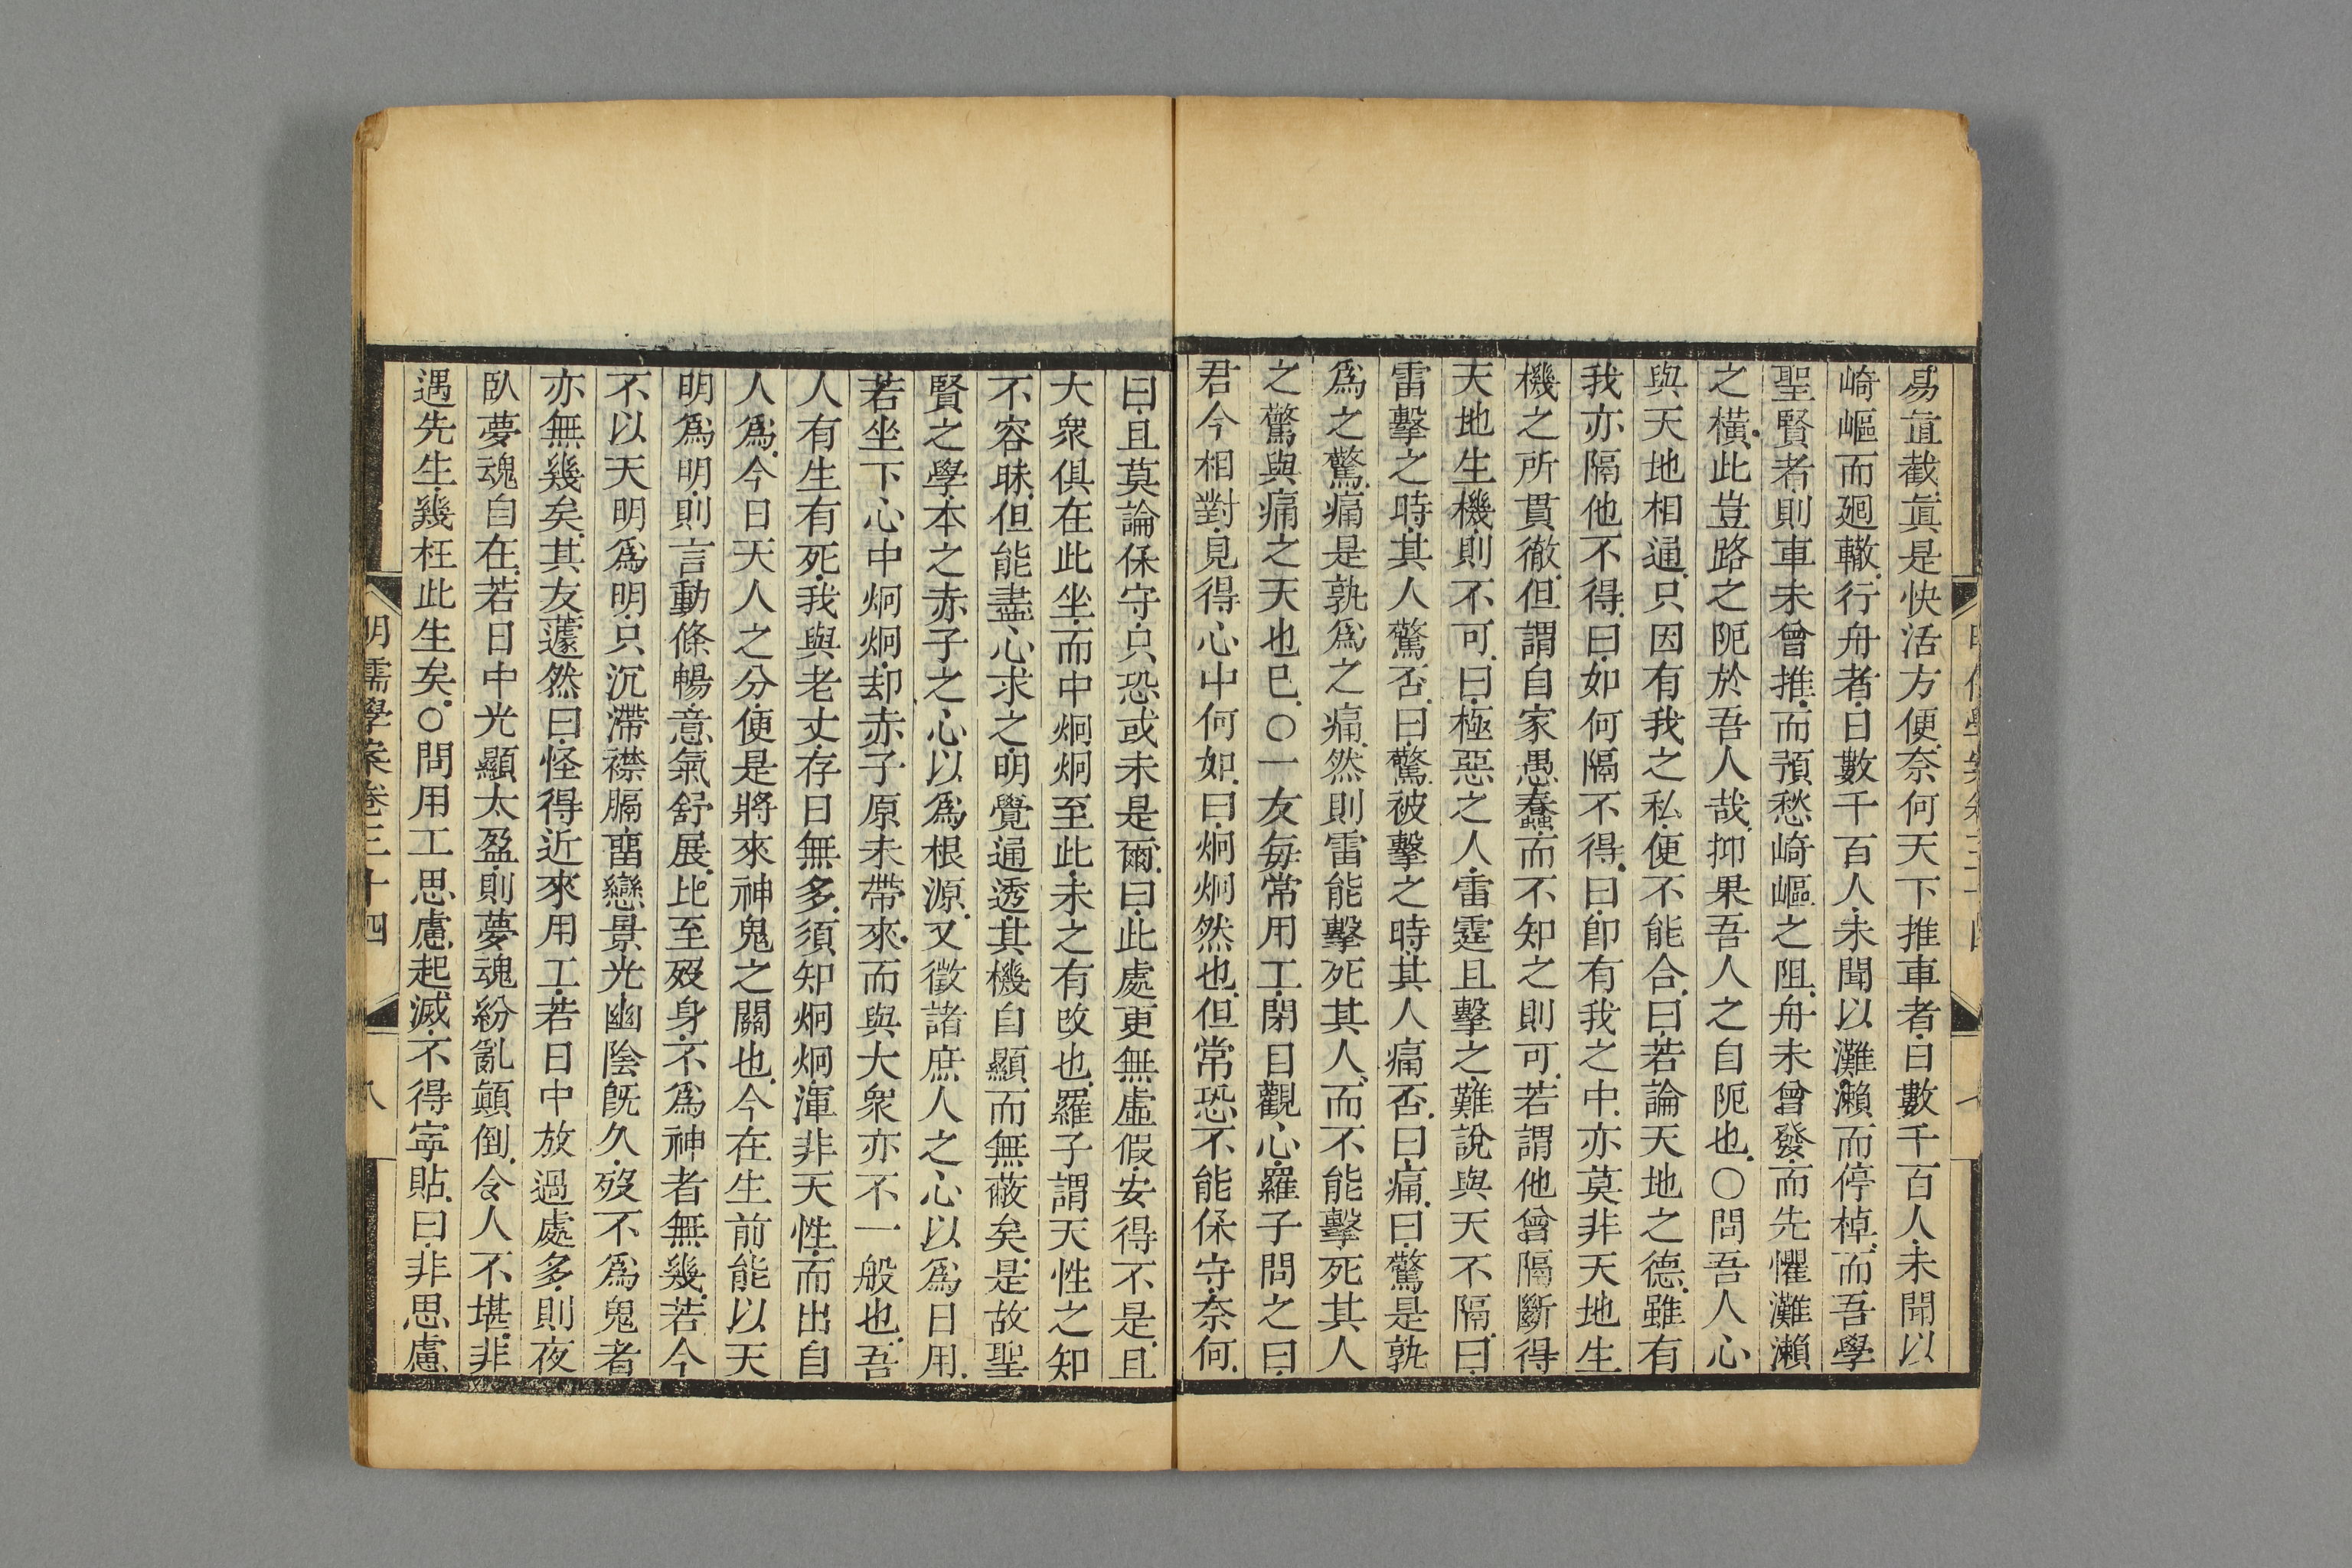 易直截眞是快活方便奈何天下推車者日數千百人未聞以
崎嶇而廻轍行舟者日數千百人未聞以灘瀨而停棹而吾學
聖賢者則車未曾推而預愁崎嶇之阻舟未曾發而先懼灘瀨
之橫此豈路之阨於吾人哉抑果吾人之自阨也○問吾人心
與天地相通只因有我之私便不能合曰若論天地之德雖有
我亦隔他不得曰如何隔不得曰卽有我之中亦莫非天地生
機之所貫徹但謂自家愚蠢而不知之則可若謂他曾隔斷得
天地生機則不可曰極惡之人雷霆且擊之難說與天不隔曰
雷擊之時其人驚否曰驚被擊之時其人痛否曰痛曰驚是孰
爲之驚痛是孰爲之痛然則雷能擊死其人而不能擊死其人
之驚與痛之天也已○一友每常用工閉目觀心羅子問之曰
君今相對見得心中何如曰炯炯然也但常恐不能保守奈何
曰且莫論保守只恐或未是爾曰此處更無虛假安得不是且
大衆俱在此坐而中炯炯至此未之有改也羅子謂天性之知
不容昧但能盡心求之明覺通透其機自顯而無蔽矣是故聖
賢之學本之赤子之心以爲根源又徵諸庶人之心以爲日用
若坐下心中炯炯却赤子原未帶來而與大衆亦不一般也吾
人有生有死我與老丈存日無多須知炯炯渾非天性而出自
人爲今日天人之分便是將來神鬼之關也今在生前能以天
明爲明則言動條暢意氣舒展比至歿身不爲神者無幾若今
不以天明爲明只沉滯襟膈畱戀景光幽陰旣久歿不爲鬼者
亦無幾矣其友蘧然曰怪得近來用工若日中放過處多則夜
臥夢魂自在若日中光顯太盈則夢魂紛亂顚倒令人不堪非
遇先生幾枉此生矣○問用工思慮起滅不得寜貼曰非思慮
明儒學案卷三十四
八